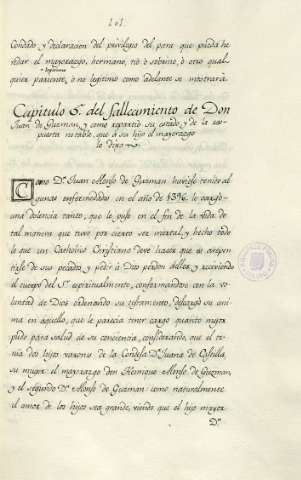 101.
Condado y declaracion del privilegio del para que pueda he
redar el mayorazgo, hermano, tio ò sobrino, ò otro qual
legitimo
quiera pariente, ò no legitimo como adelante se mostrará.
Capitulo 6º del fallecimiento de Don
Juan de Guzman, y como repartió su estado, y de la res-
puesta notable, que à su hijo el mayorazgo
le dixo
Como Dn. Juan Alonso de Guzman huviese tenido al
gunas enfermedades en el año de 1396. le cargó
una dolencia tanto, que le puso en el fin de la vida de
tal manera que tuvo por cierto ser mortal, y hecho todo
lo que un Catholico Christiano deve hasta que se arepen
tiese de sus pecados y pedir à Dios perdon dellos, y reciviendo
el cuerpo del Sr. espiritualmente, conformandose con la vo
luntad de Dios ordenando su testamento, descargó su ani
ma en aquello, que le parecia tener cargo quanto mejor
pudo para salud de su conciencia, considerando, que el te
nia dos hijos varones de la Condesa Da. Juana de Castilla,
su muger, el mayorazgo don Henrique Alonso de Guzman,
y el segundo Dn. Alonso de Guzman: como naturalmente
el amor de los hijos sea grande, viendo que el hijo mayor
Dn.